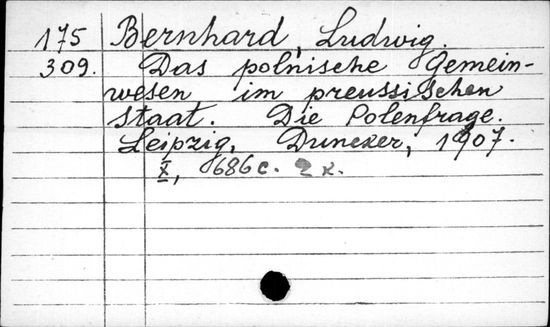 175 Bernhard, Ludwig.
309. Das polnische Gemein-
wesen im preussischen
Staat. Die Polenfrage.
Leipzig, Duncker, 1907.
X, 686 c. 2 к.